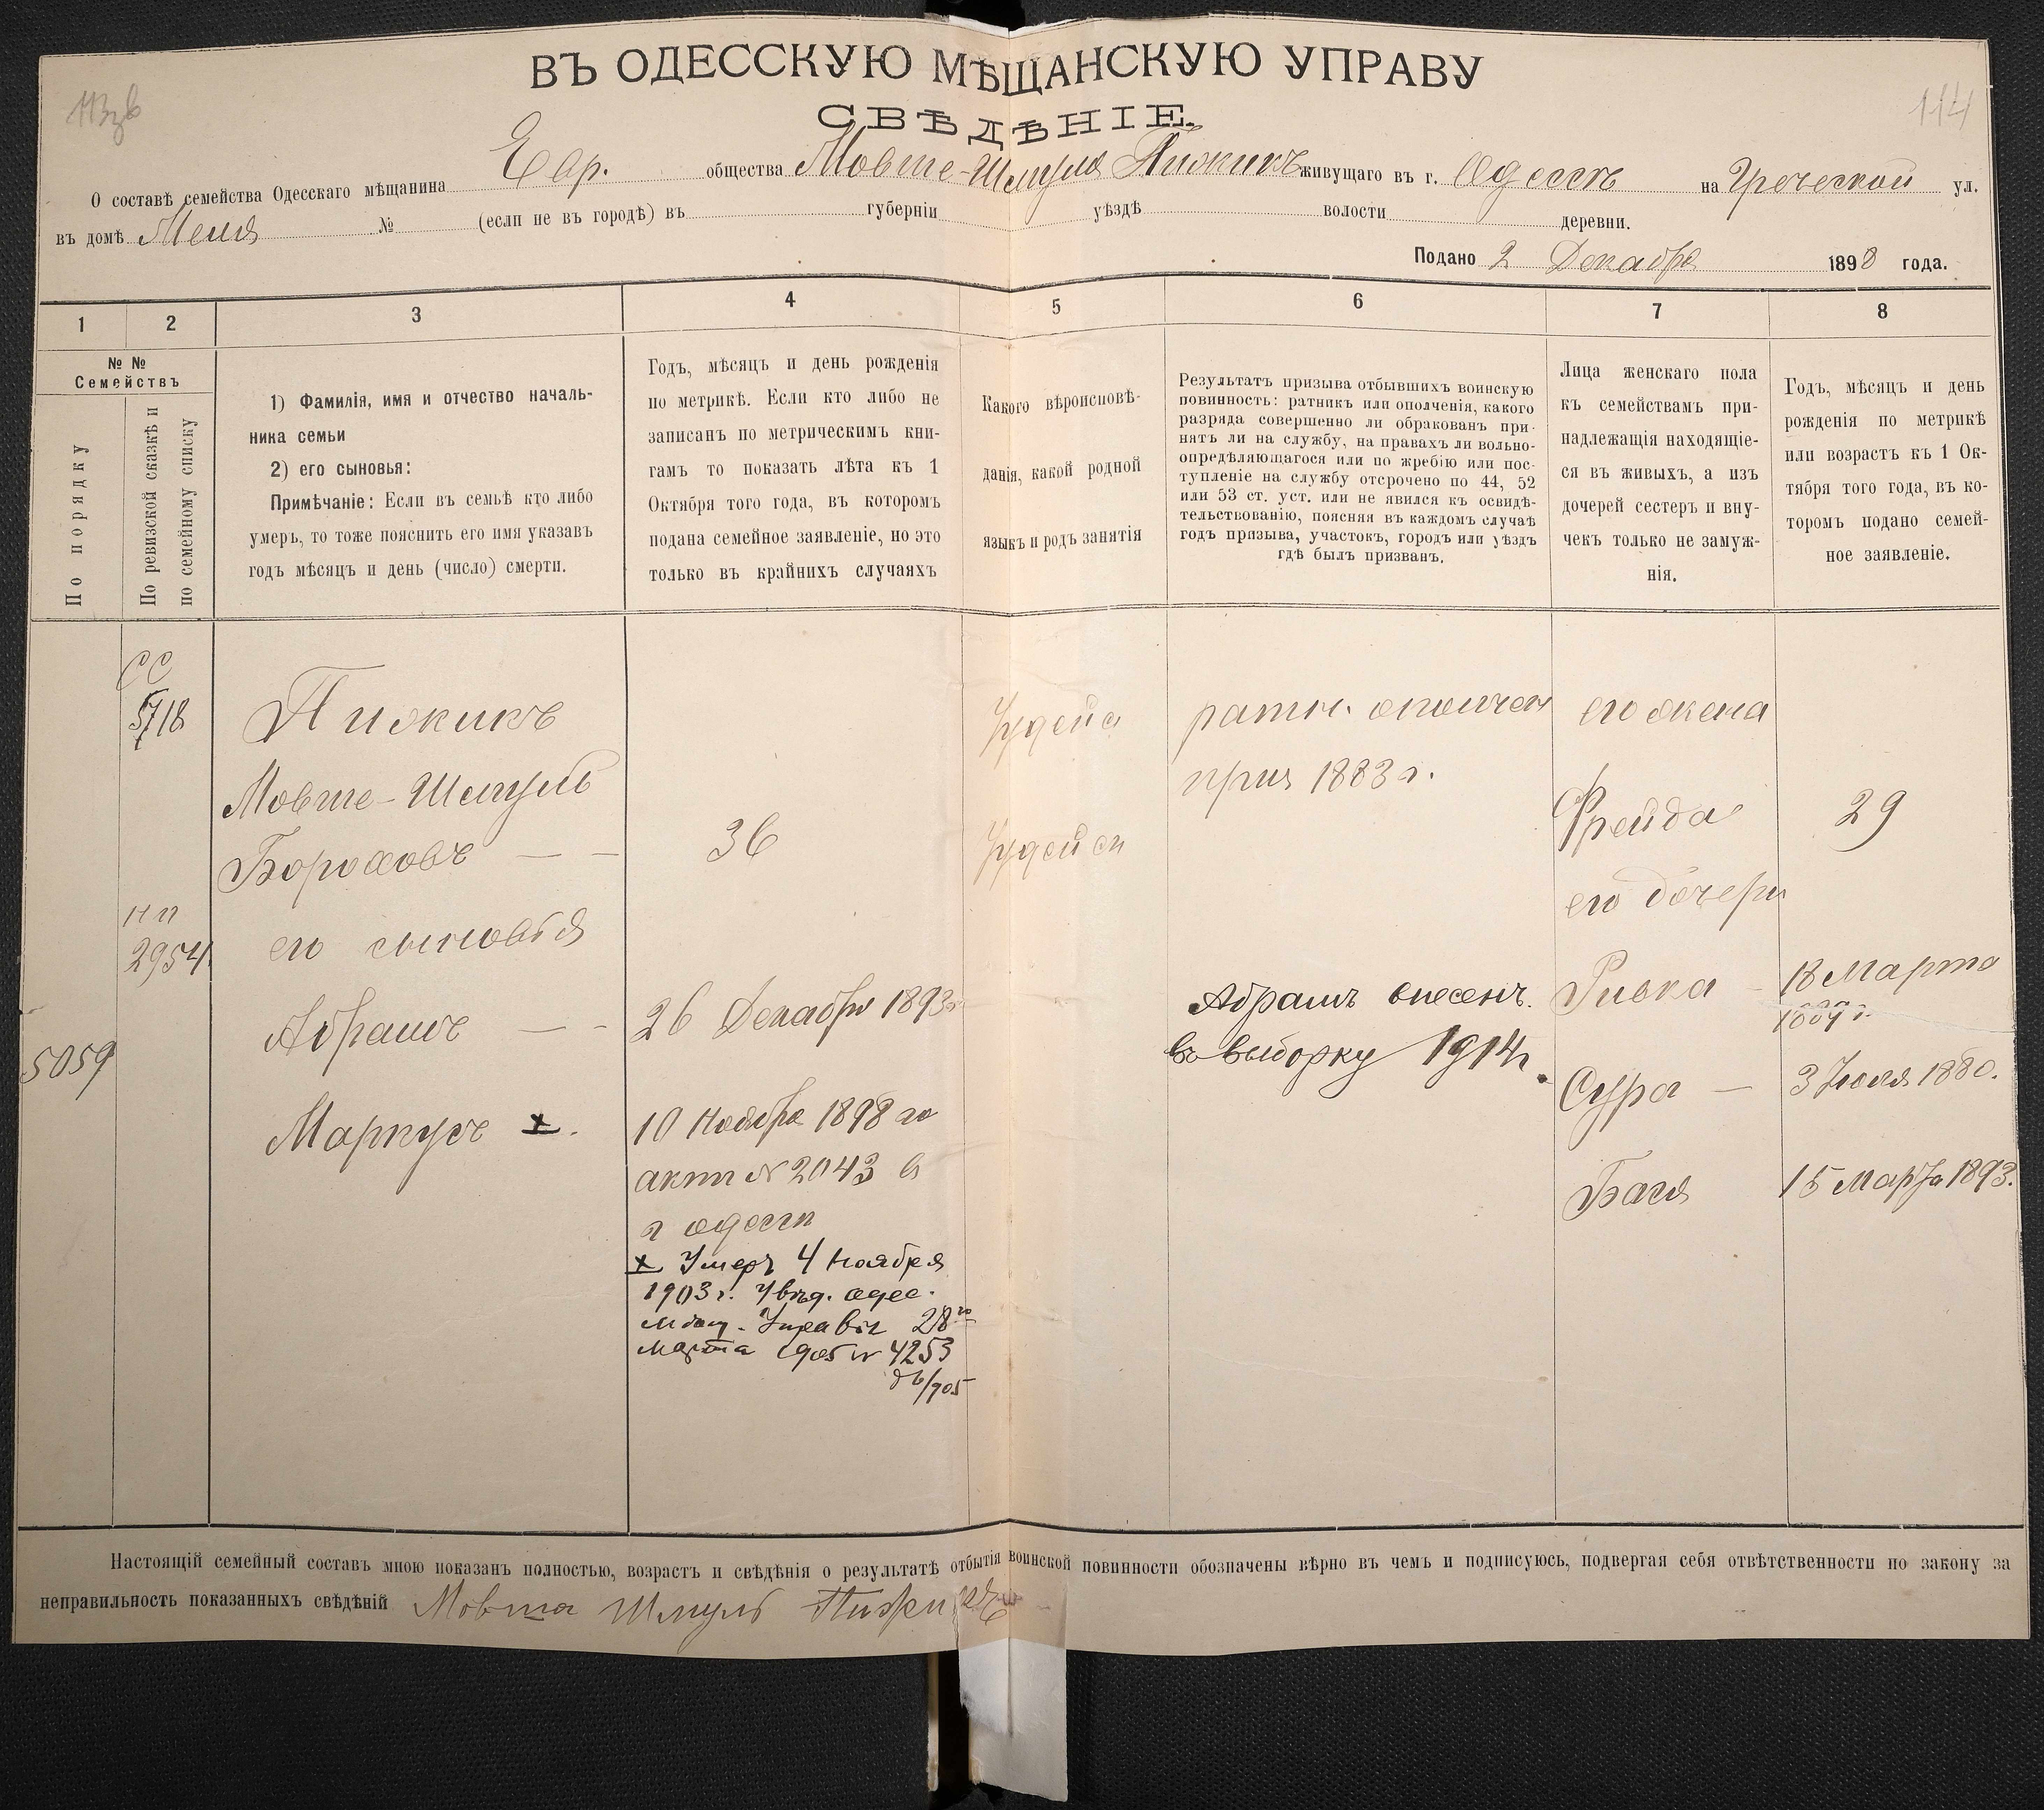 ВЪ ОДЕССКУЮ МѢЩАНСКУЮ УПРАВУ
СВѢДѢНІЕ.
114
О составѣ семейства Одесскаго мѣщанина Евр. общества Мовше-Шмуля Пижикъ живущаго въ г. Одессѣ на Греческой ул.
въ домѣ № (если не въ городѣ) въ губерніи уѣздѣ волости деревни.
Подано 2 Декабря 1898 года.
1 2 3 4 5 6 7 8
№ №
Семействъ
По порядку
По ревизской сказкѣ и
по семейному списку
1) Фамилія, имя и отчество началь-
ника семьи
2) его сыновья:
Примѣчаніе: Если въ семьѣ кто либо
умеръ, то тоже пояснить его имя указавъ
годъ мѣсяцъ и день (число) смерти.
Годъ, мѣсяцъ и день рожденія
по метрикѣ. Если кто либо не
записанъ по метрическимъ кни-
гамъ то показать лѣта къ 1
Октября того года, въ которомъ
подана семейное заявленіе, но это
только въ крайнихъ случаяхъ
Какого вѣроисповѣ-
данія, какой родной
языкъ и родъ занятія
Результатъ призыва отбывшихъ воинскую
повинность: ратникъ или ополченія, какого
разряда совершенно ли обракованъ при-
нятъ ли на службу, на правахъ ли вольно-
опредѣляющагося или по жребію или пос-
тупленіе на службу отсрочено по 44, 52
или 53 ст. уст. или не явился къ освидѣ-
тельствованію, поясняя въ каждомъ случаѣ
годъ призыва, участокъ, городъ или уѣздъ
гдѣ былъ призванъ.
Лица женскаго пола
къ семействамъ при-
надлежащія находящіе-
ся въ живыхъ, а изъ
дочерей сестеръ и вну-
чекъ только не замуж-
нія.
Годъ, мѣсяцъ и день
рожденія по метрикѣ
или возрастъ къ 1 Ок-
тября того года, въ ко-
торомъ подано семей-
ное заявленіе.
СС
5718
Пижикъ
Мовше-Шмуль
Бороховъ — —
36
Иудейск
Иудейск
ратн. ополчен
приз 1883 г.
его жена
Фрейда
29
его дочери
нп
2954
5059
его сыновья
Абрамъ — -
26 Декабря 1893 г
Абрамъ внесенъ
въ выборку 1914 г.
Ривка -
18 Марта
1889 г.
Маркусъ х.
10 Ноября 1898 го
актъ № 2043 в
г одессѣ
Сура —
3 Июля 1880.
Бася
15 Марта 1893.
х Умеръ 4 Ноября
1903 г. Увѣд. одес.
Мѣщ. Управы 28го
Марта 1905 № 4253
Настоящій семейный составъ мною показанъ полностью, возрастъ и свѣдѣнія о результатѣ отбытія воинской повинности обозначены вѣрно въ чемъ и подписуюсь, подвергая себя отвѣтственности по закону за
неправильность показанныхъ свѣдѣній Мовша Шмуль Пижикъ